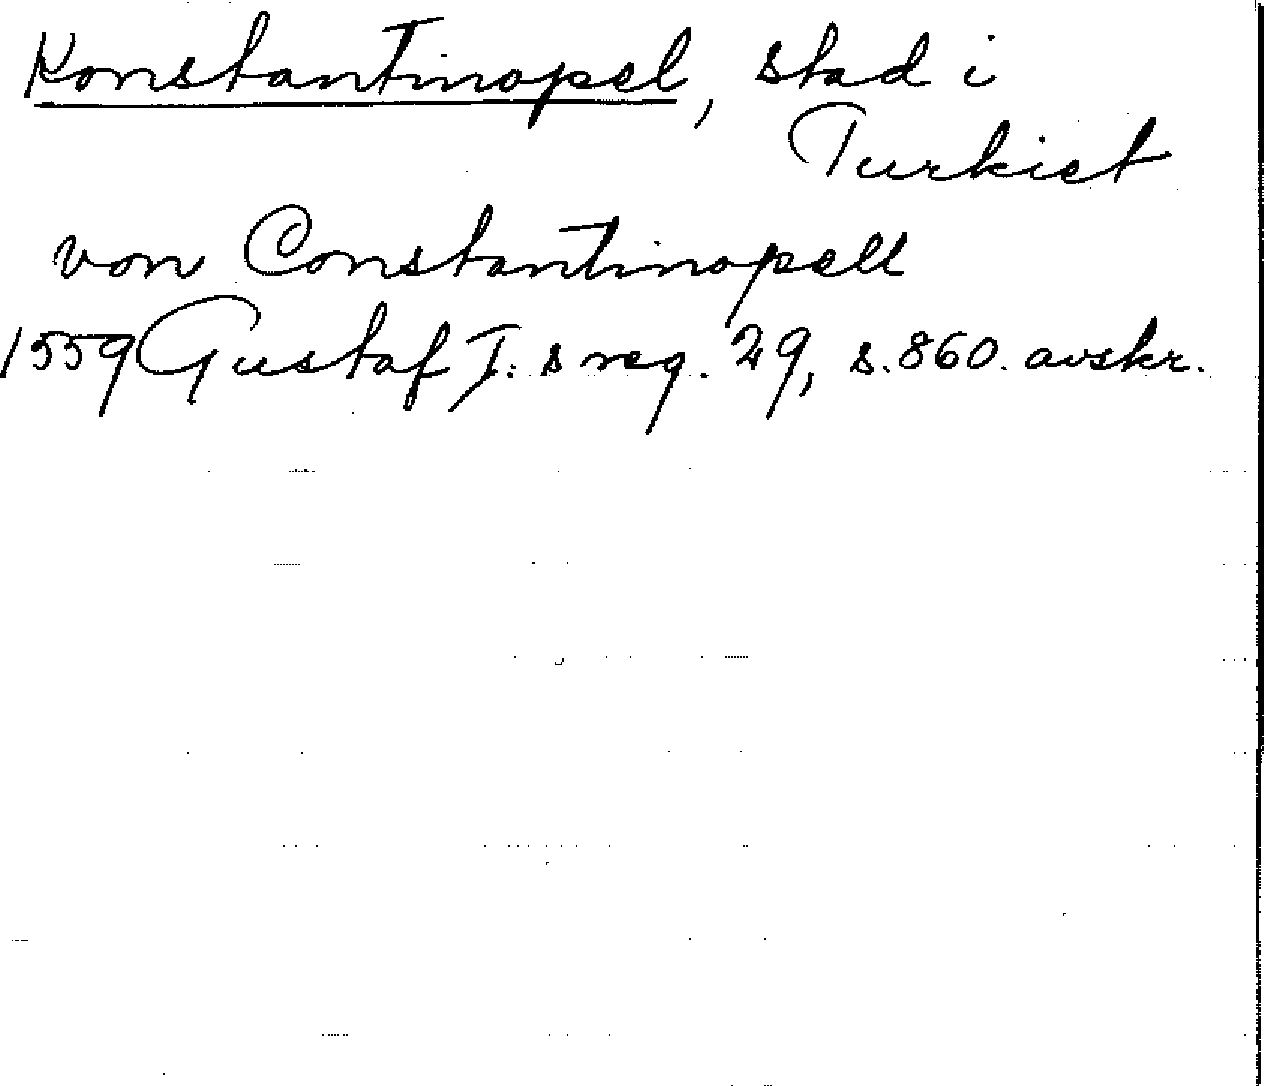 Konstantinopel, stad i
Turkiet
von Constantinopell
1559 Gustaf I:s reg. 29, s. 860. avskr.